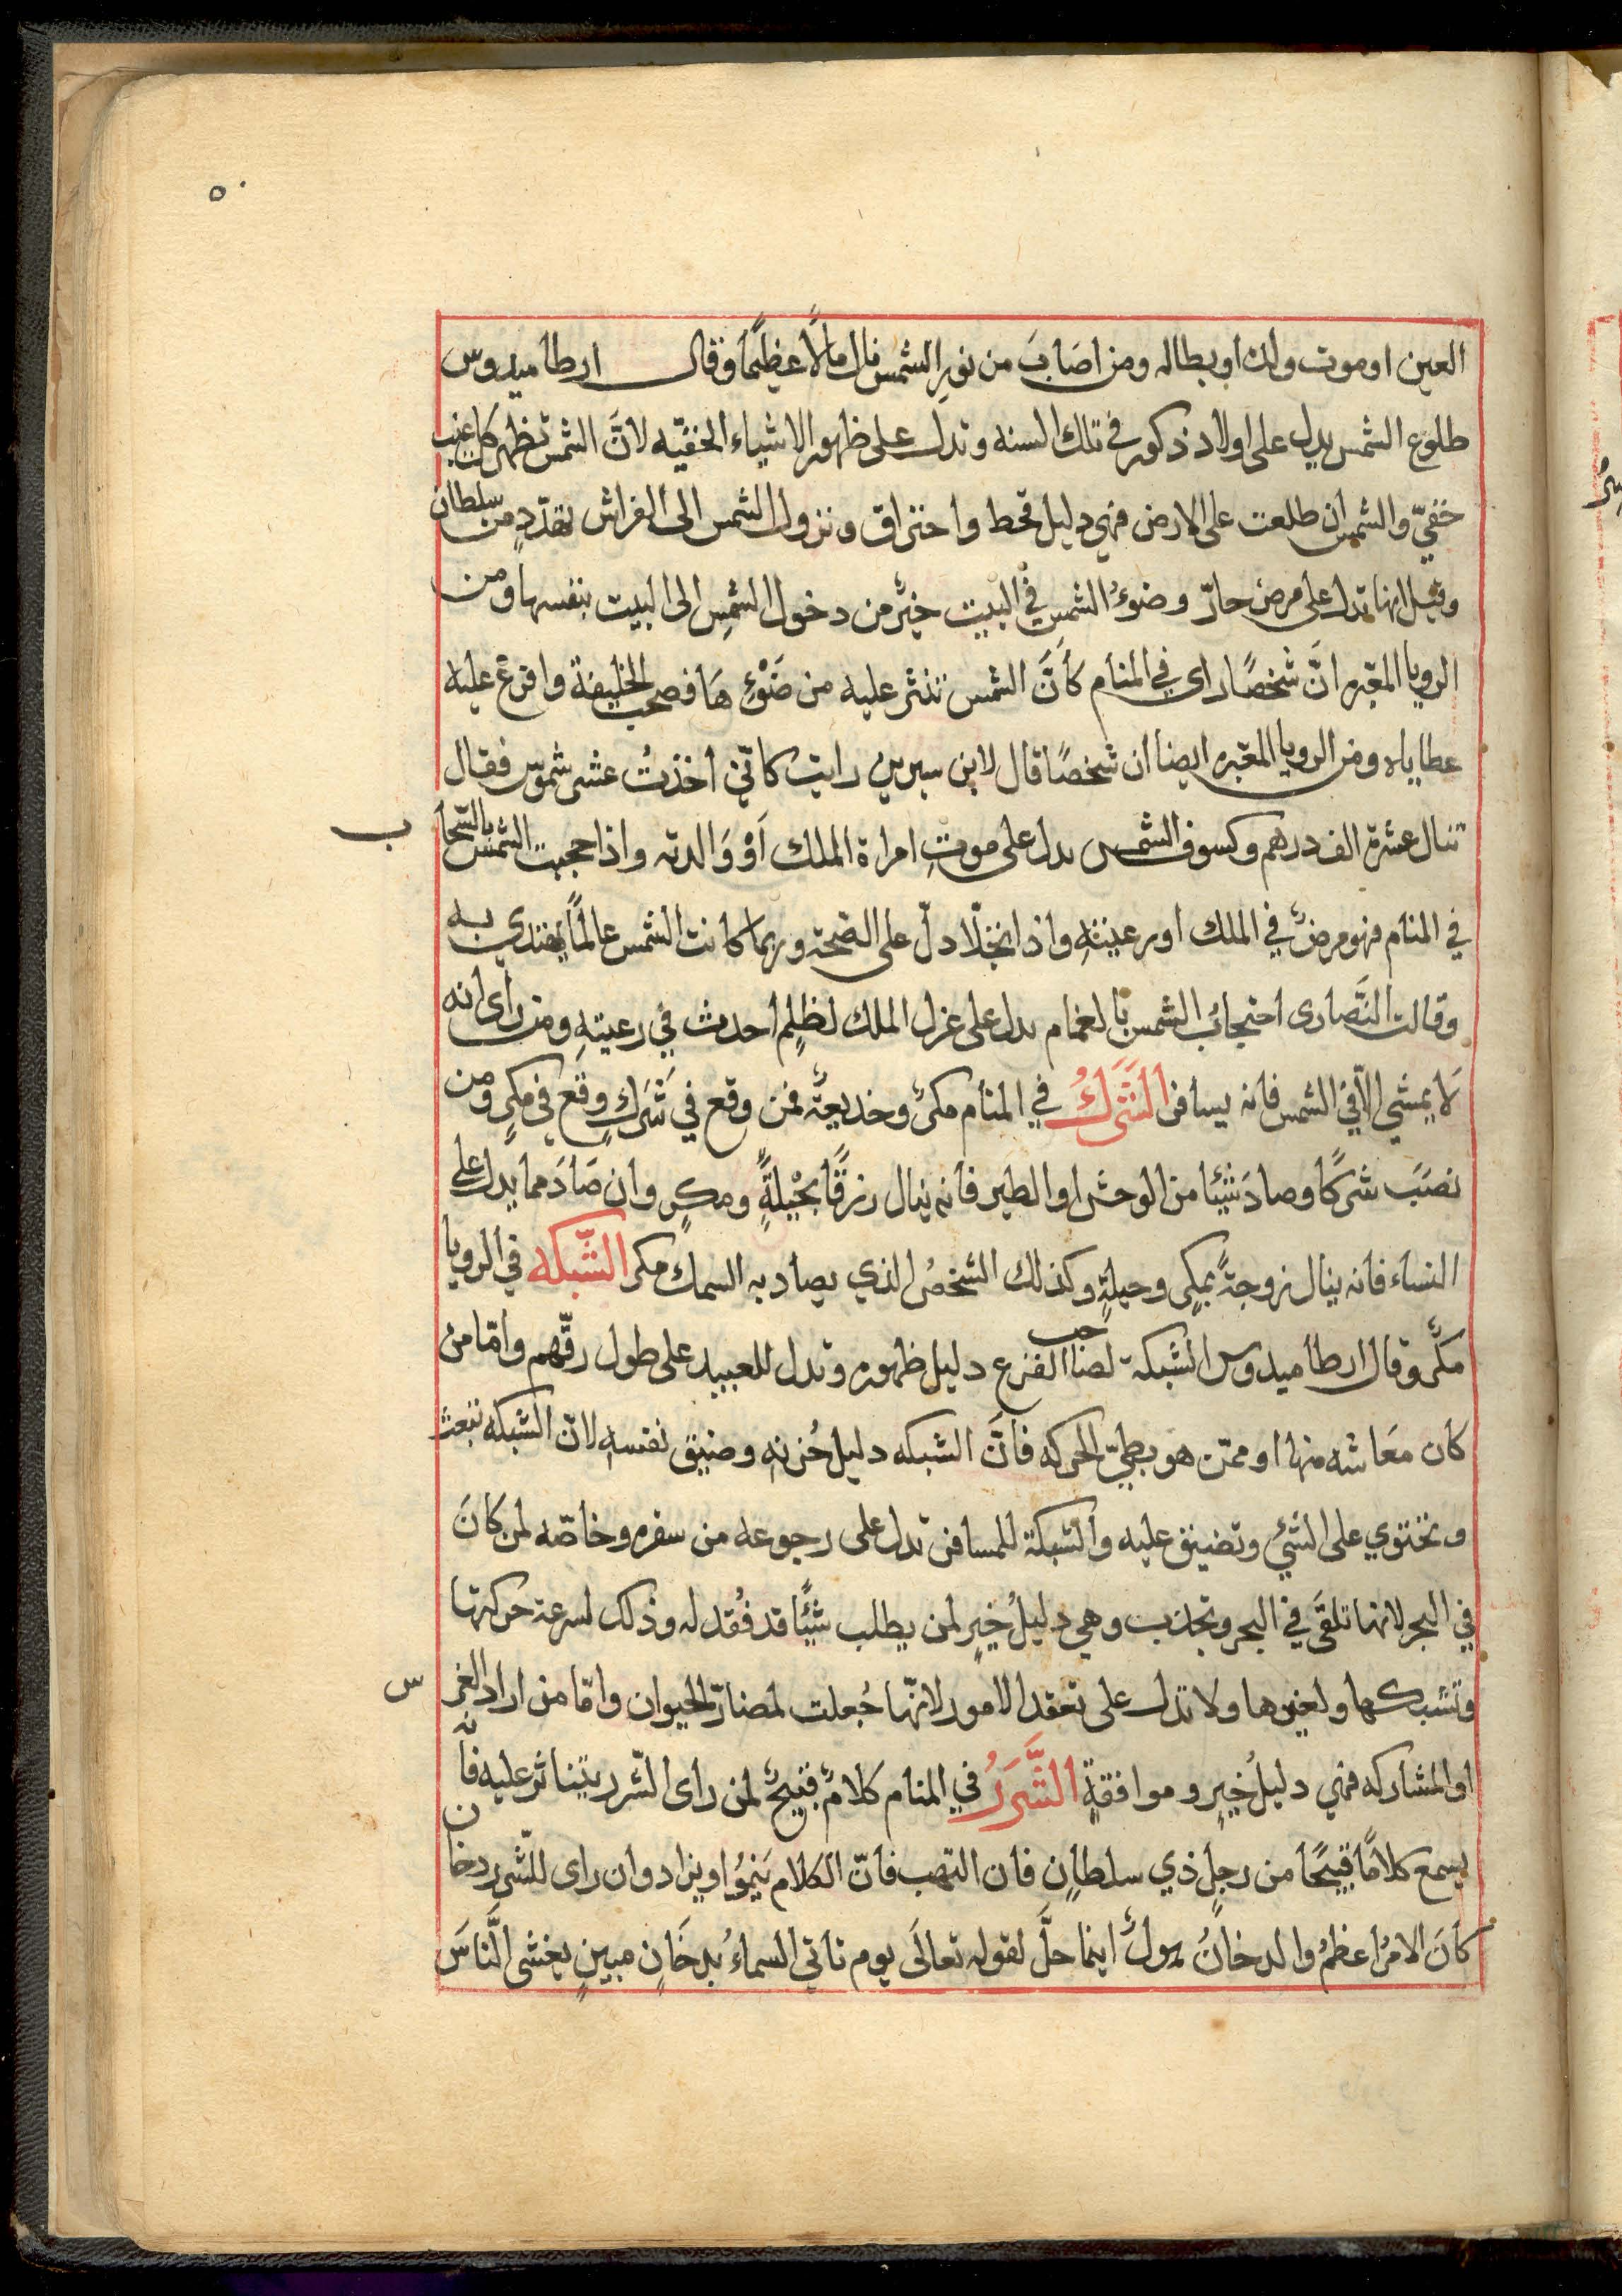 ٥٠
العين او موت ولد او بطاله ومن اصَابَ من نورِ الشمس نال مالًا عظيمًا وقال ارطاميدوس
طلوع الشمس يدل على اولاد ذكور في تلك السنه وتدل على ظهور الاشياء الخفيّه لانَّ الشمس تظهر كل
خفيّ والشمس ان طلعت على الارض فهي دليل قحط واحتراق ونزول الشمس الى الفراش من سلطان
وقيل انها تدل على مرض حارّ وضوءُ الشمس في البيت خيرٌ من دخول الشمسِ الى البيت بنفسها ومن
الرويا المعبّره انَّ شخصًا راى في المنام كأنَّ الشمس تنثر عليه من ضَوْئِهَا فصحب الخليفة وافرغ عليه
عطاياه ومن الرويا المعبّره ايضا ان شخصًا قال لابن سيرين رايت كانّي اخذتُ عشر شموس فقال
تنال عشرة الف درهم وكسوف الشمس يدل على موتِ امراة الملك اَوْ وَالدته واذا حجبت الشمس بالسّحاب
في المنام فهو مرضٌ في الملك او رعيّتهِ واذ انجلا دلّ على الصّحة وربما كانت الشمس عالمًا يقتدي به
وقالت النَّصارى احتجابُ الشمس بالغمام يدل على عزل الملك لظلمٍ احدث في رعيتهِ ومن راى انه
لَا يمشي الّا في الشمس فانه يسافر الشَّرَكُ في المنام مكرٌ وخديعةٌ فمن وقع في شَرَكٍ وقع في مكرٍ ومن
نصَبَ شركًا وصادَ شيئا من الوحش او الطير فانه ينال رزقًا بحْيلةٍ ومكرٍ وان صَادَ مما يدل على
النساء فانه ينال زوجةً بمكرٍ وحيلةٍ وكذلك الشخصُ الذي يصاد به السمك مكر الشّبكه في الرويا
مكرٌ وقال ارطاميدوس الشبكة لصاحب الفزع دليل ظهوره وتدل للعبيد على طول رقّهم وامّا من
كان معَاشه منها او ممّن هو بطيّ الحركه فانَّ الشبكه دليل حُزنهِ وضيق نفسهِ لانّ الشبكه تبعث
وتحتوي على الشيْ وتضيق عليه والشبكة للمسافر تدل على رجوعه من سفره وخاصّه لمن كَانَ
في البحر لانها تلقَى في البحر وتجذب وهي دليلُ خيرٍ لمن يطلب شيئًا قد فُقد له وذلك لسرعة حركتها
وتشبكها ولغيرها ولا تدل على تعقد الامور لانّها جُعلت لمضارّ الحيوان وامّا من اراد الغرس
او المشاركه فهي دليلُ خيرٍ وموافقةٍ الشَّرَرُ في المنام كلامٌ قبيحٌ لمن رأى الشرر يتناثر عليه فانّه
يسمع كلامًا قبيحًا من رجلٍ ذي سلطانٍ فان التهب فانّ الكلام يَنمُوا ويزاد وان راى للشّرر دخان
كانَ الامرُ اعظمُ والدخانُ هولٌ اينما حلَّ لقوله تعالَى يوم تاتي السماءُ بدخَانٍ مبينٍ يغشى النَّاسَ